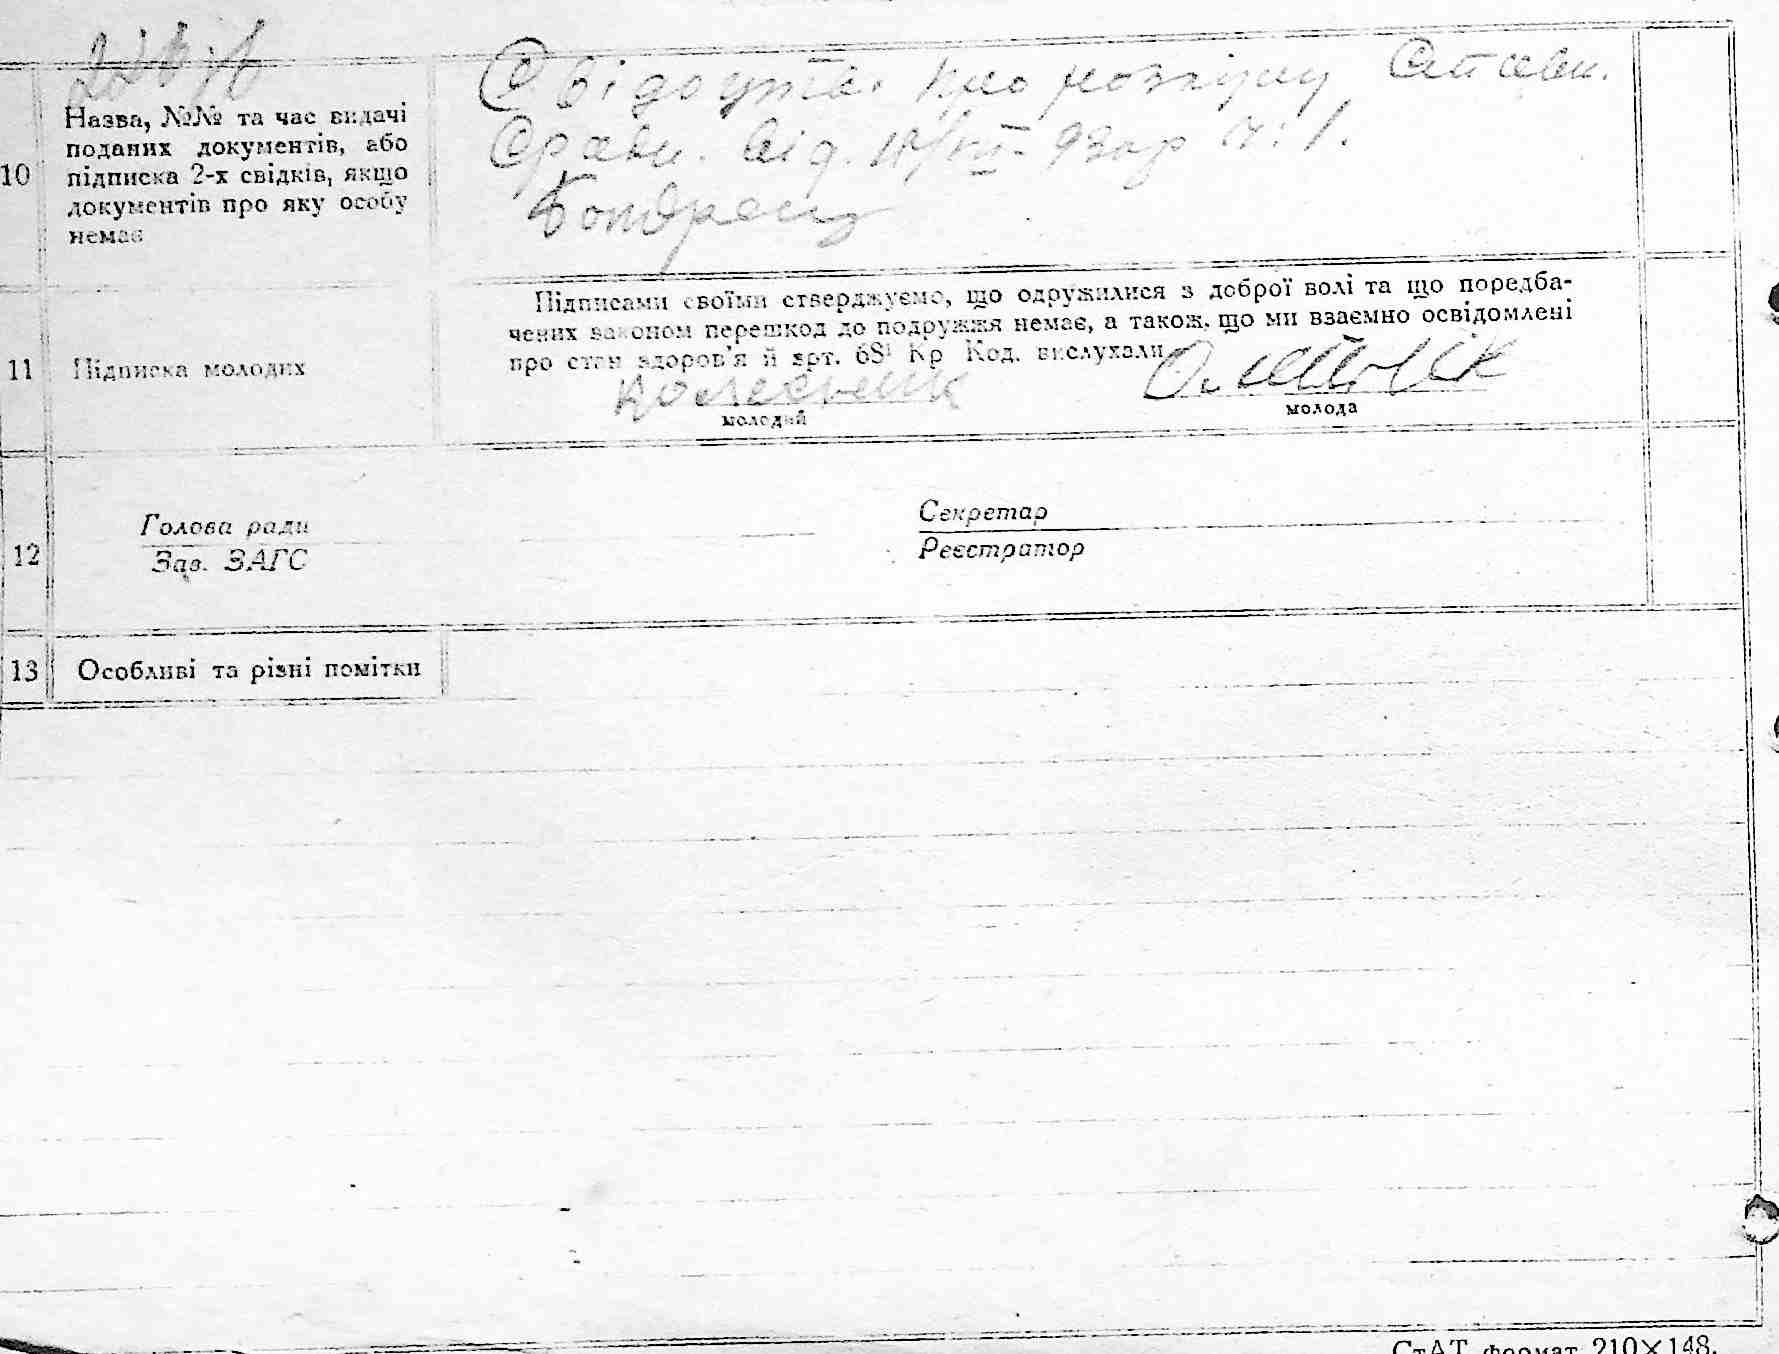 10
Назва, №№ та час видачі
поданих документів, або
підписка 2-х свідків, якщо
документів про яку особу
немає
Свідоцтво про
від
11
Підписка молодих
Підписами своїми стверджуємо, що одружилися з доброї волі та що поредба-
чених законом перешкод до подружжя немає, а також, що ми взаємно освідомлені
про стан здоров'я й арт. 68¹ Кр Код. вислухали
молодий
молода
12
Голова ради
Зав. ЗАГС
Секретар
Реєстратор
13
Особливі та різні помітки
СтАТ формат 210×148.